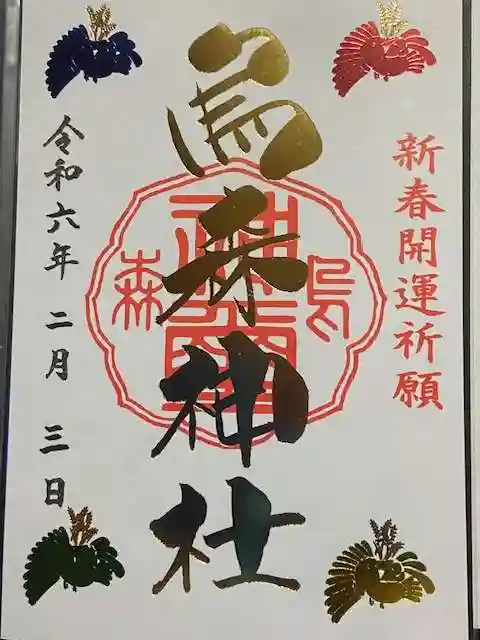 新春開運祈願
烏森神社
烏森
令和六年 二月 三日